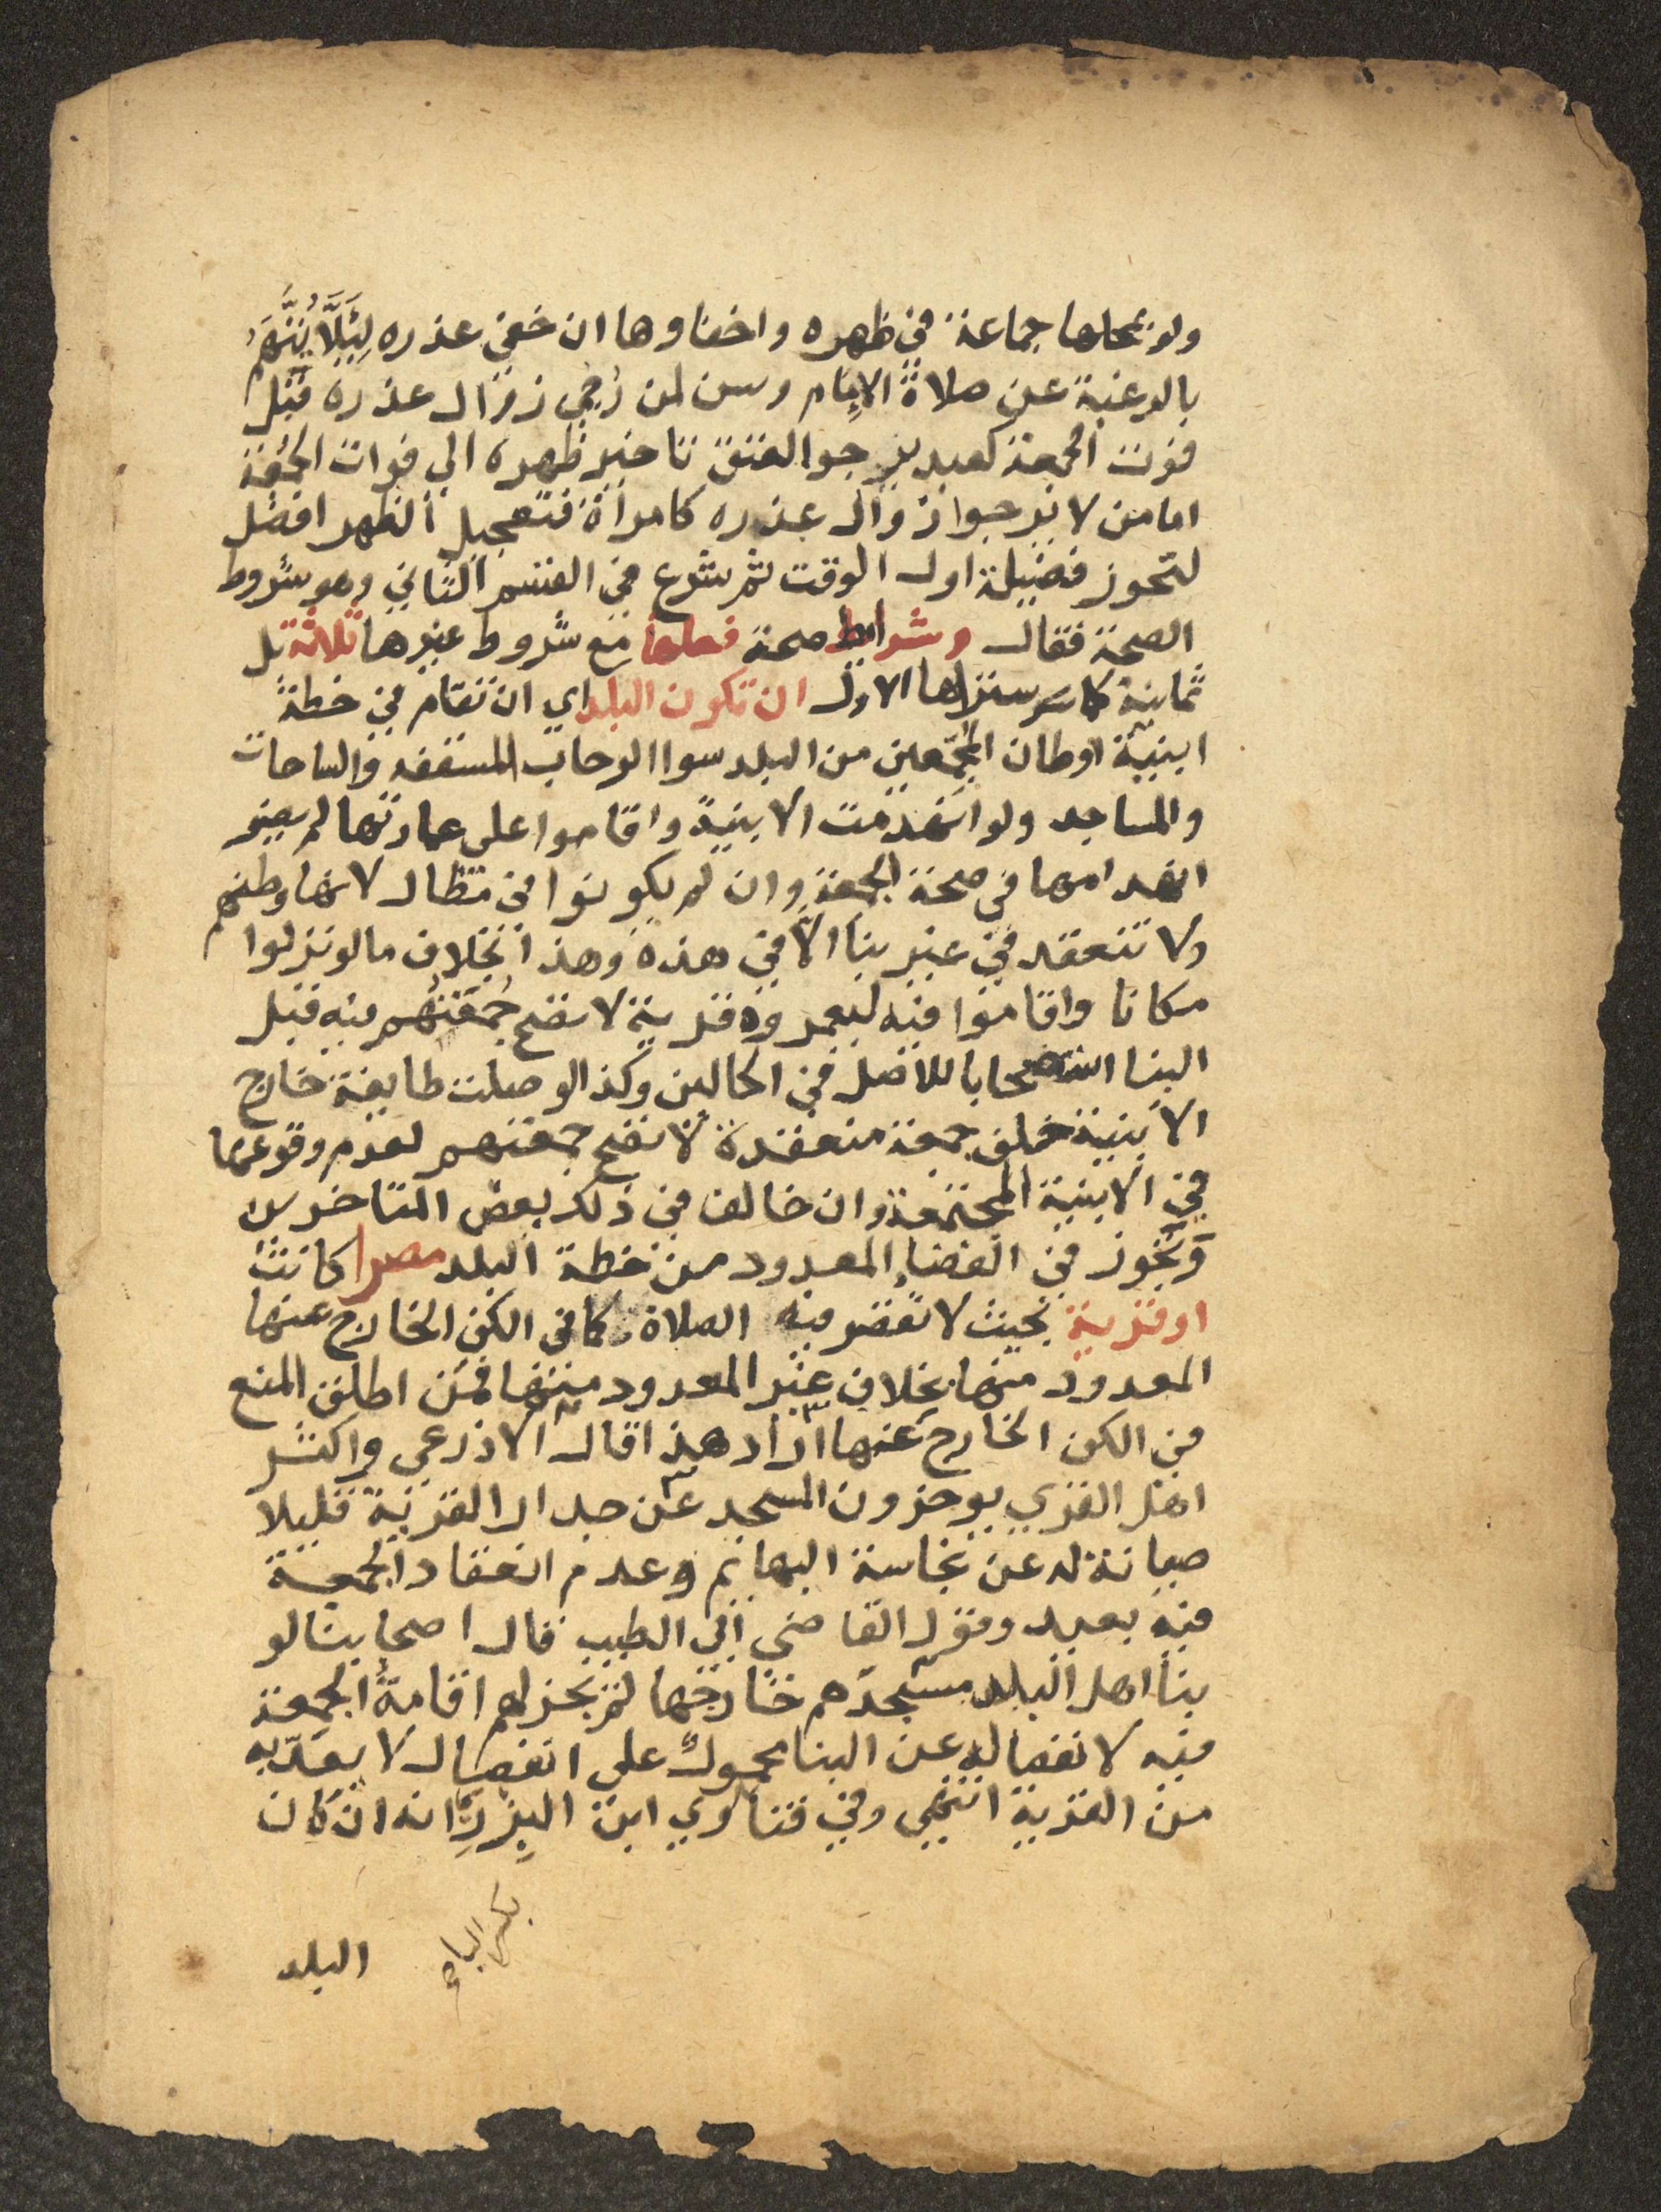 ولو بمحلها جماعة في ظهره واخفاوها ان خفي عذره لِئَلَّا يُتَّهَمُ
بالرغبة عن صلاة الامام وسن لمن رُجي زوال عذره قبل
فوت الجمعة كعبد يرجوا العتق تاخير ظهره الي فوات الجمعة
اما من لا يرجوا زوال عذره كامراة فتعجيل الظهر افضل
لتحوز فضيلة اول الوقت ثم شرع في القسم الثاني وهو شروط
الصحة فقال وشرايط صحة فعلها مع شروط غيرها ثلاثة بل
ثمانية كما ستراها الاول ان تكون البلد اي ان تقام في خطة
ابنية اوطان المجمعين من البلد سوا الرحاب المسقفه والساحات
والمساجد ولو انهدمت الابنية واقاموا على عمارتها لم يضر
انهدامها في صحة الجمعة وان لم يكونوا في مظال لانها وطنهم
ولا تنعقد في غير بنا الا في هذه وهذا بخلاف ما لو نزلوا
مكانا واقاموا فيه ليعمروه قرية لا تصح جُمعَتُهم فيه قبل
البنا استصحابا للاصل في الحالين وكذا لو صلت طايفة خارج
الابنية خلف جمعة منعقدة لا تصح جمعتهم لعدم وقوعها
في الابنية المجتمعة وان خالف في ذلك بعض المتاخرين
وتجوز في الفضاء المعدود من خطة البلد مصرا كانت
او قرية بحيث لا تقصر فيه الصلاة كما في الكن الخارج عنها
المعدود منها بخلاف غير المعدود منها فمن اطلق المنع
في الكن الخارج عنها اراد هذا قال الاذرعي واكثر
اهل القري يوخرون المسجد عن جدار القرية قليلا
صيانة له عن نجاسة البهائم وعدم انعقاد الجمعة
فيه بعيد وقول القاضي ابي الطيب قال اصحابنا لو
بنا اهل البلد مسجدهم خارجها لم يجز لهم اقامةُ الجمعة
فيه لانفصاله عن البنا محمول على انفصال لا يعدّ به
من القرية انتهى وفي فتاوي ابن البِزْرِيّ انه ان كان
البلد